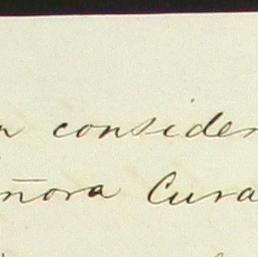 n consider
eñora Cura